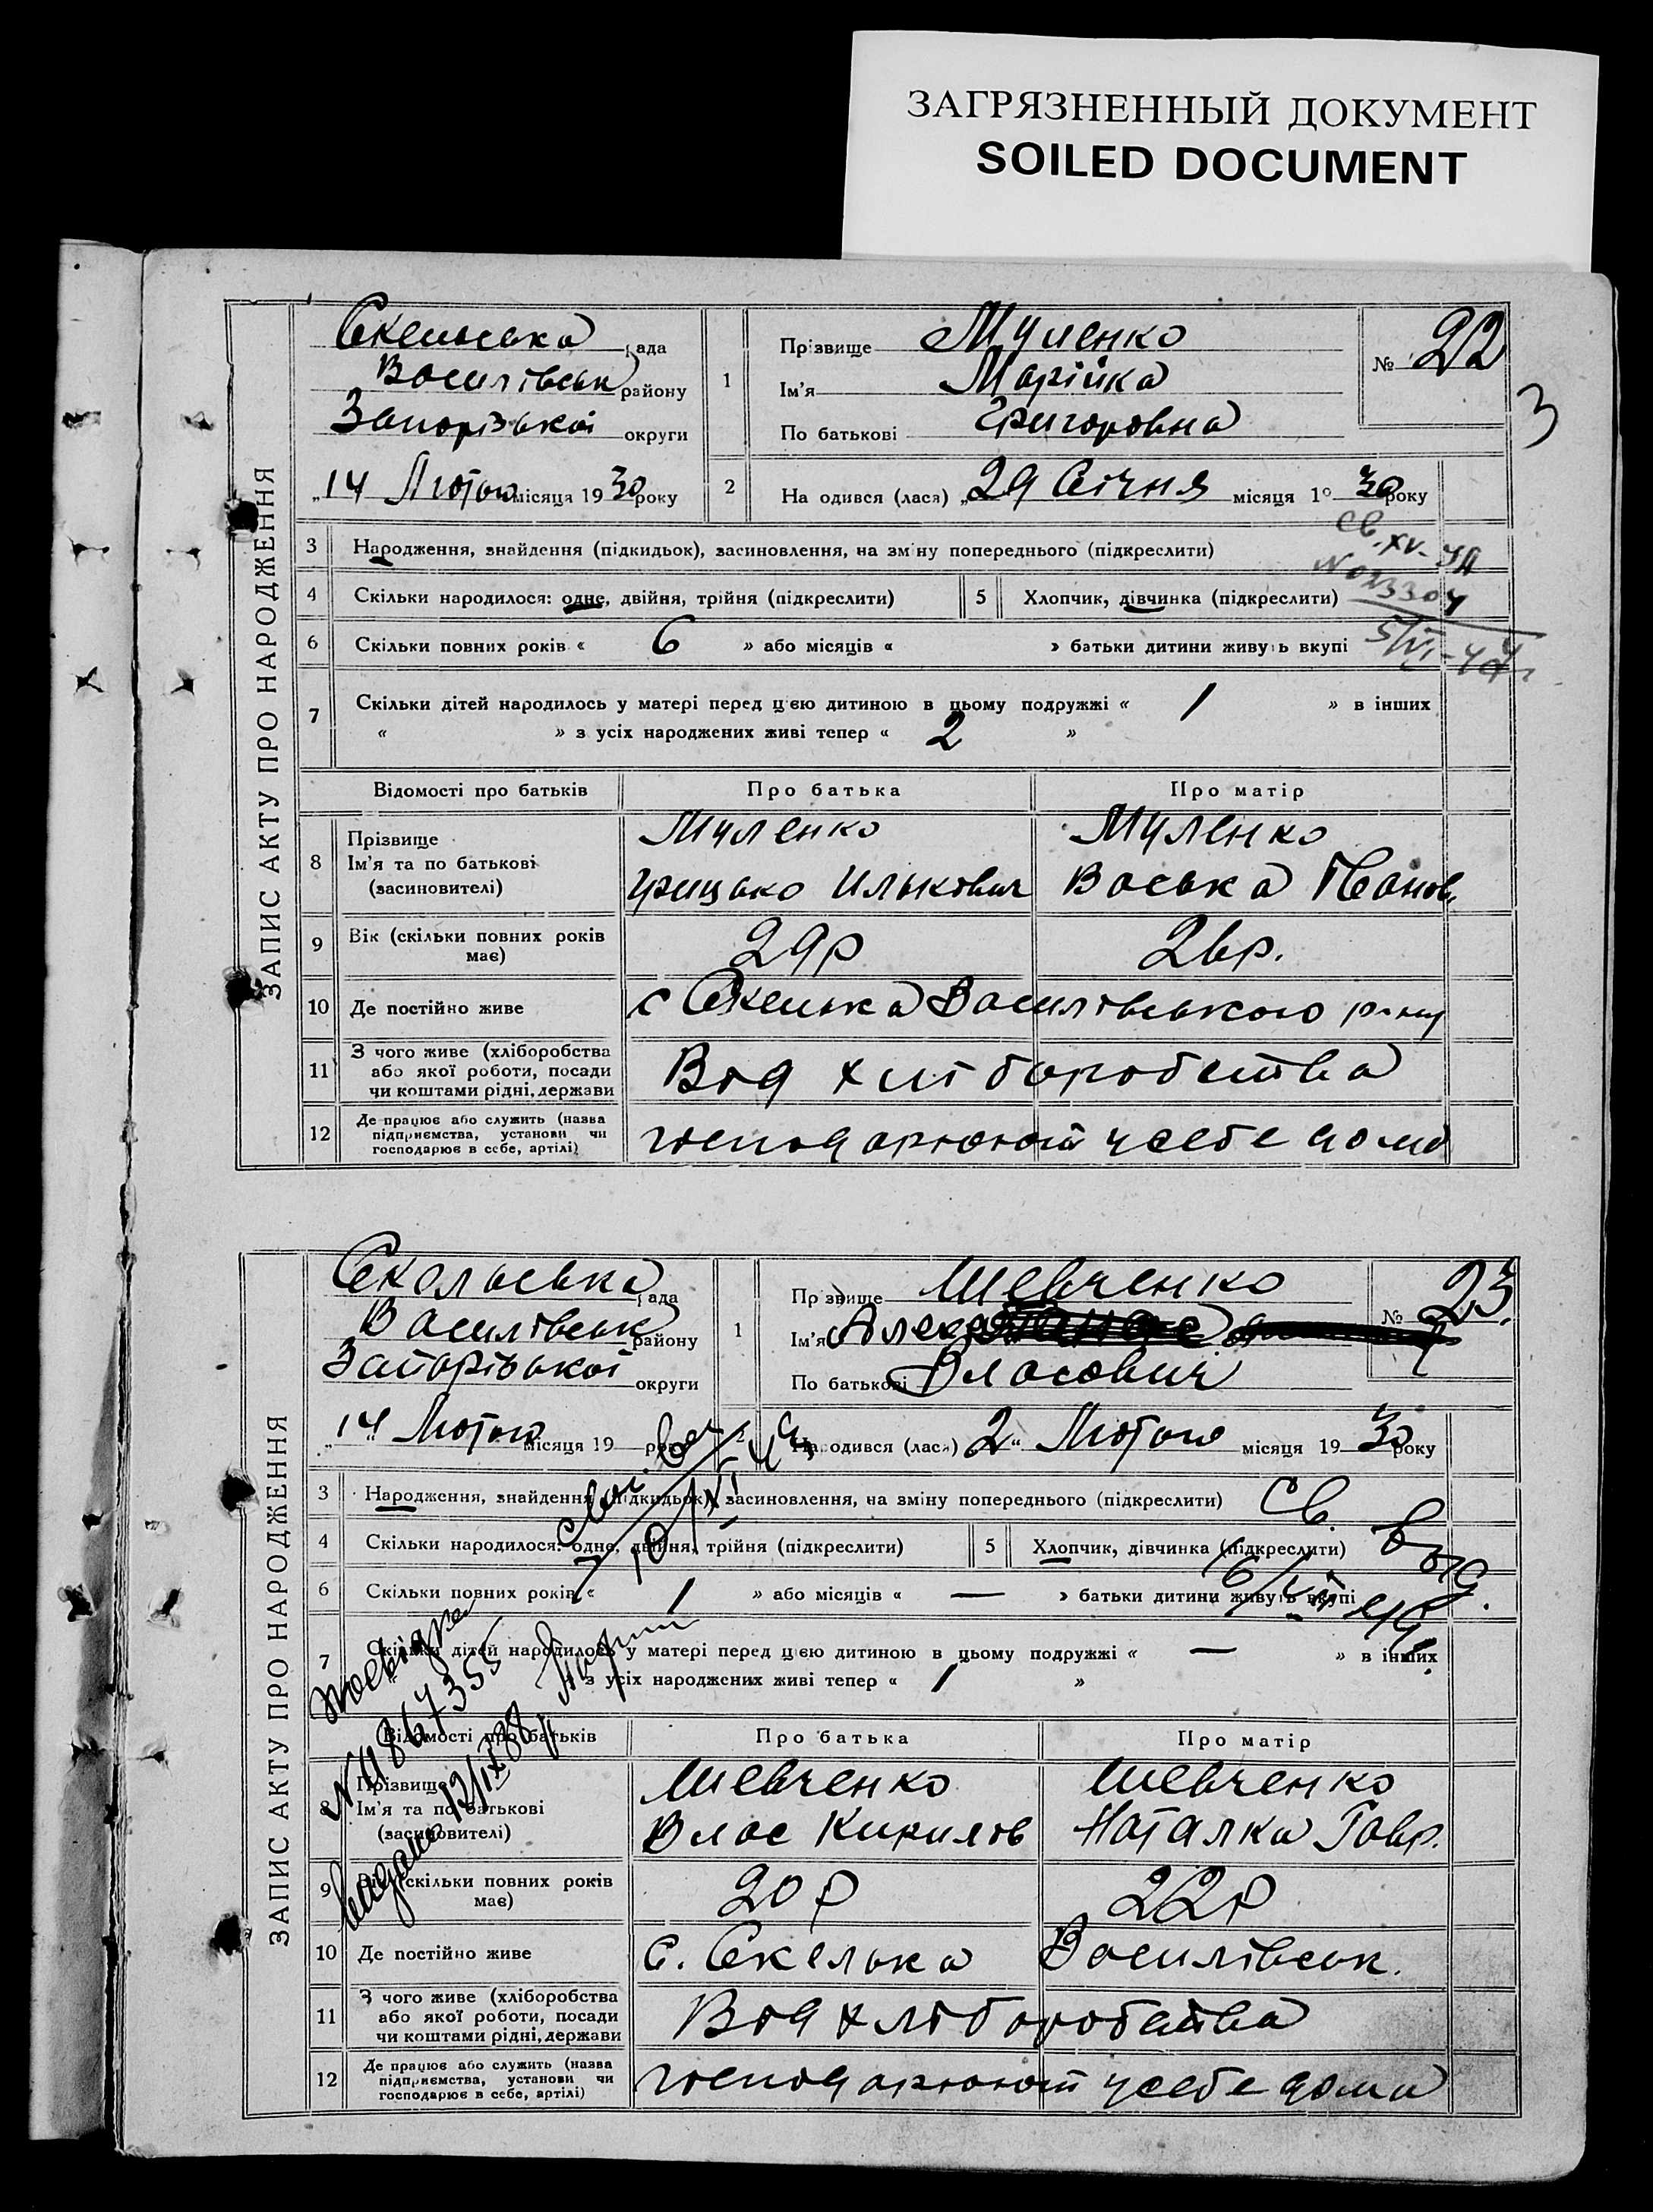 ЗАГРЯЗНЕННЫЙ ДОКУМЕНТ
SOILED DOCUMENT
3
ЗАПИС АКТУ ПРО НАРОДЖЕННЯ
Скельська рада
Василівськ району
Запорізької округи
„14 Лютого місяця 1930 року
1 Прізвище Муленко
Ім'я Марійка
По батькові Григоровна
№ 22
2 На одився (лася) „29 Січня місяця 1° 30 року
3 Народження, знайдення (підкидьок), засиновлення, на зміну попереднього (підкреслити)
св. XV-
№ 023304
4 Скільки народилося: одне, двійня, трійня (підкреслити) 5 Хлопчик, дівчинка (підкреслити)
6 Скільки повних років « 6 » або місяців « » батьки дитини живуть вкупі
7 Скільки дітей народилось у матері перед цією дитиною в цьому подружжі « 1 » в інших
« » з усіх народжених живі тепер « 2 »
Відомості про батьків Про батька Про матір
8 Прізвище
Ім'я та по батькові
(засиновителі)
Муленко
Грицько Илькович
Муленко
Васька Иванов.
9 Вік (скільки повних років має) 29р 26р.
10 Де постійно живе с Скелька Василівського р-ну
11 З чого живе (хліборобства
або якої роботи, посади
чи коштами рідні, держави
Від хліборобства
12 Де працює або служить (назва
підприємства, установи чи
господарює в себе, артілі)
господарюют у себе дома
ЗАПИС АКТУ ПРО НАРОДЖЕННЯ
Скельська рада
Василівськ району
Запорізької округи
„14" Лютого місяця 19 року
1 Прізвище Шевченко
Ім'я
По батькові Власович
№ 23.
2 Народився (лася) „2" Лютого місяця 1930 року
3 Народження, знайдення (підкидьок), засиновлення, на зміну попереднього (підкреслити)
Св. выд.
4 Скільки народилося: одне, двійня, трійня (підкреслити) 5 Хлопчик, дівчинка (підкреслити)
6 Скільки повних років « 1 » або місяців « — » батьки дитини живуть вкупі
7 Скільки дітей народилось у матері перед цією дитиною в цьому подружжі « — » в інших
з усіх народжених живі тепер « 1 »
Відомості про батьків Про батька Про матір
8 Прізвище
Ім'я та по батькові
(засиновителі)
Шевченко
Влас Кирилов
Шевченко
Наталка Гавр.
9 Вік (скільки повних років має) 20р 22р
10 Де постійно живе с. Скелька Василівськ.
11 З чого живе (хліборобства
або якої роботи, посади
чи коштами рідні, держави
Від хліборобства
12 Де працює або служить (назва
підприємства, установи чи
господарює в себе, артілі)
господарюют у себе дома